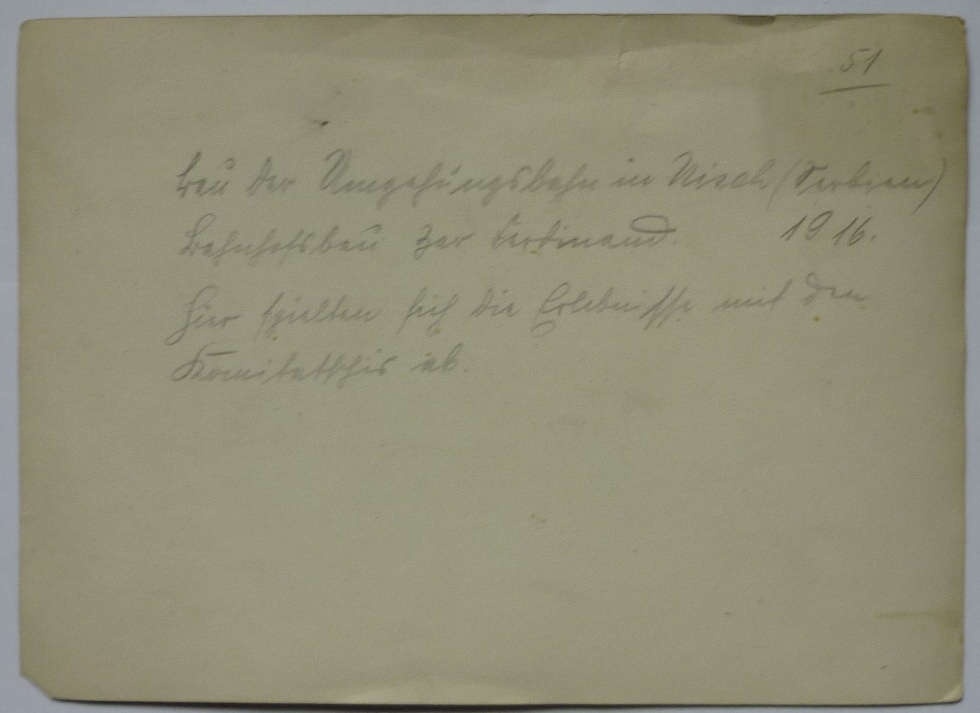 51
Bau der Umgehungsbahn in Nisch (Serbien)
Bahnhofsbau Zar Ferdinand. 1916.
Hier spielten sich die Erlebnisse mit den
Komitatschis ab.